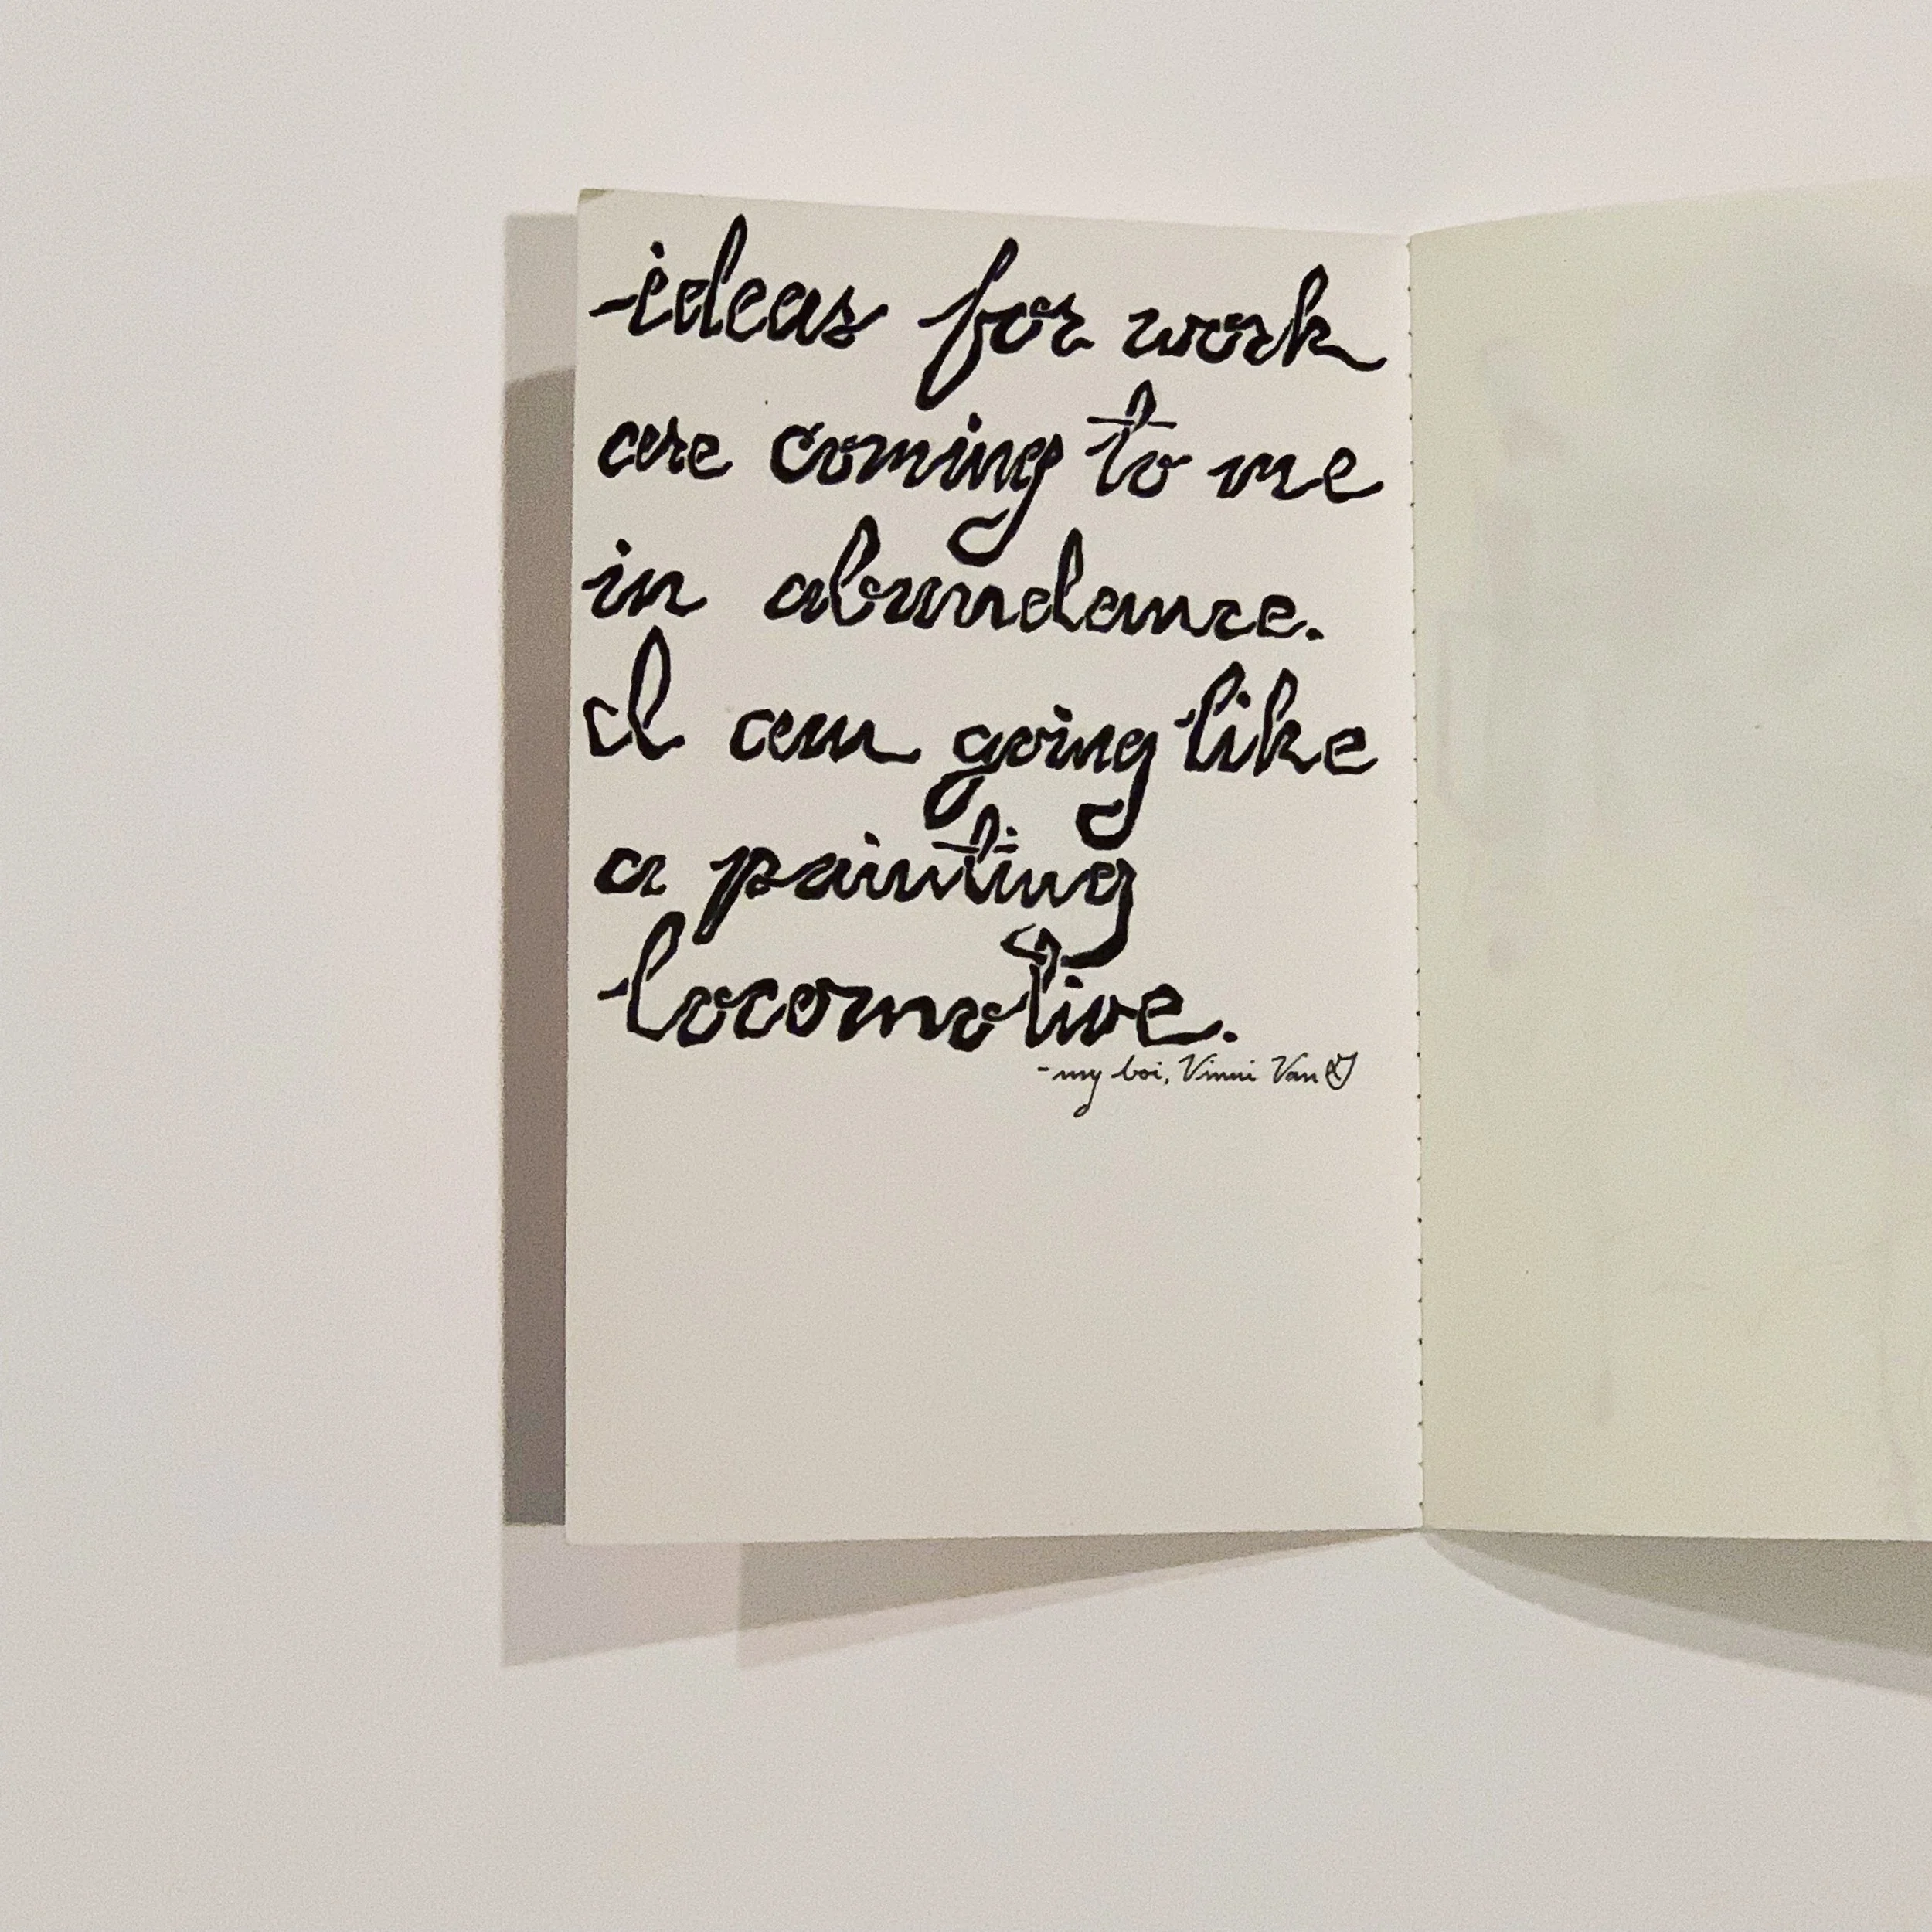 ideas for work
are coming to me
in abundance.
I am going like
a painting
locomotive.
- my boi, Vinni Van G